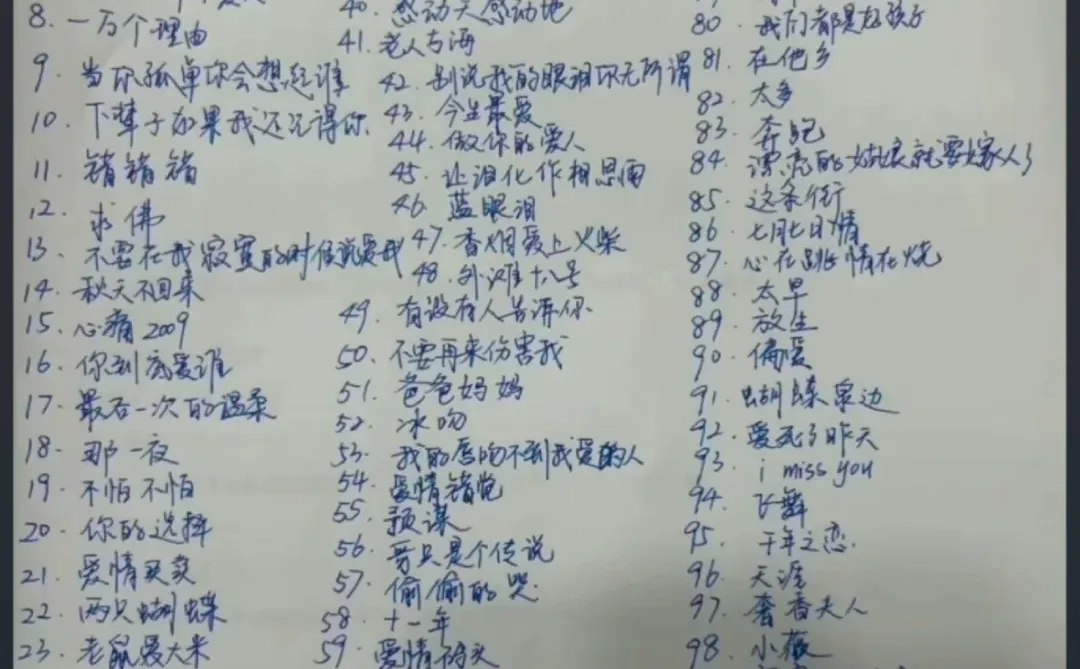 8. 一万个理由
9. 当你孤单你会想起谁
10. 下辈子如果我还记得你
11. 错错错
12. 求佛
13. 不要在我寂寞的时候说爱我
14. 秋天不回来
15. 心痛2009
16. 你到底爱谁
17. 最后一次的温柔
18. 那一夜
19. 不怕不怕
20. 你的选择
21. 爱情买卖
22. 两只蝴蝶
23. 老鼠爱大米
40. 感动天感动地
41. 老人与海
42. 别说我的眼泪你无所谓
43. 今生最爱
44. 做你的爱人
45. 让泪化作相思雨
46. 蓝眼泪
47. 香烟爱上火柴
48. 外滩十八号
49. 有没有人告诉你
50. 不要再来伤害我
51. 爸爸妈妈
52. 冰吻
53. 我的唇吻不到我爱的人
54. 爱情错觉
55. 预谋
56. 哥只是个传说
57. 偷偷的哭
58. 十一年
59. 爱情码头
80. 我们都是好孩子
81. 在他乡
82. 太多
83. 奔跑
84. 漂亮的姑娘就要嫁人了
85. 这条街
86. 七月七日情
87. 心在跳情在烧
88. 太早
89. 放生
90. 偏爱
91. 蝴蝶泉边
92. 爱死了昨天
93. i miss you
94. 飞舞
95. 千年之恋
96. 天涯
97. 奢香夫人
98. 小薇